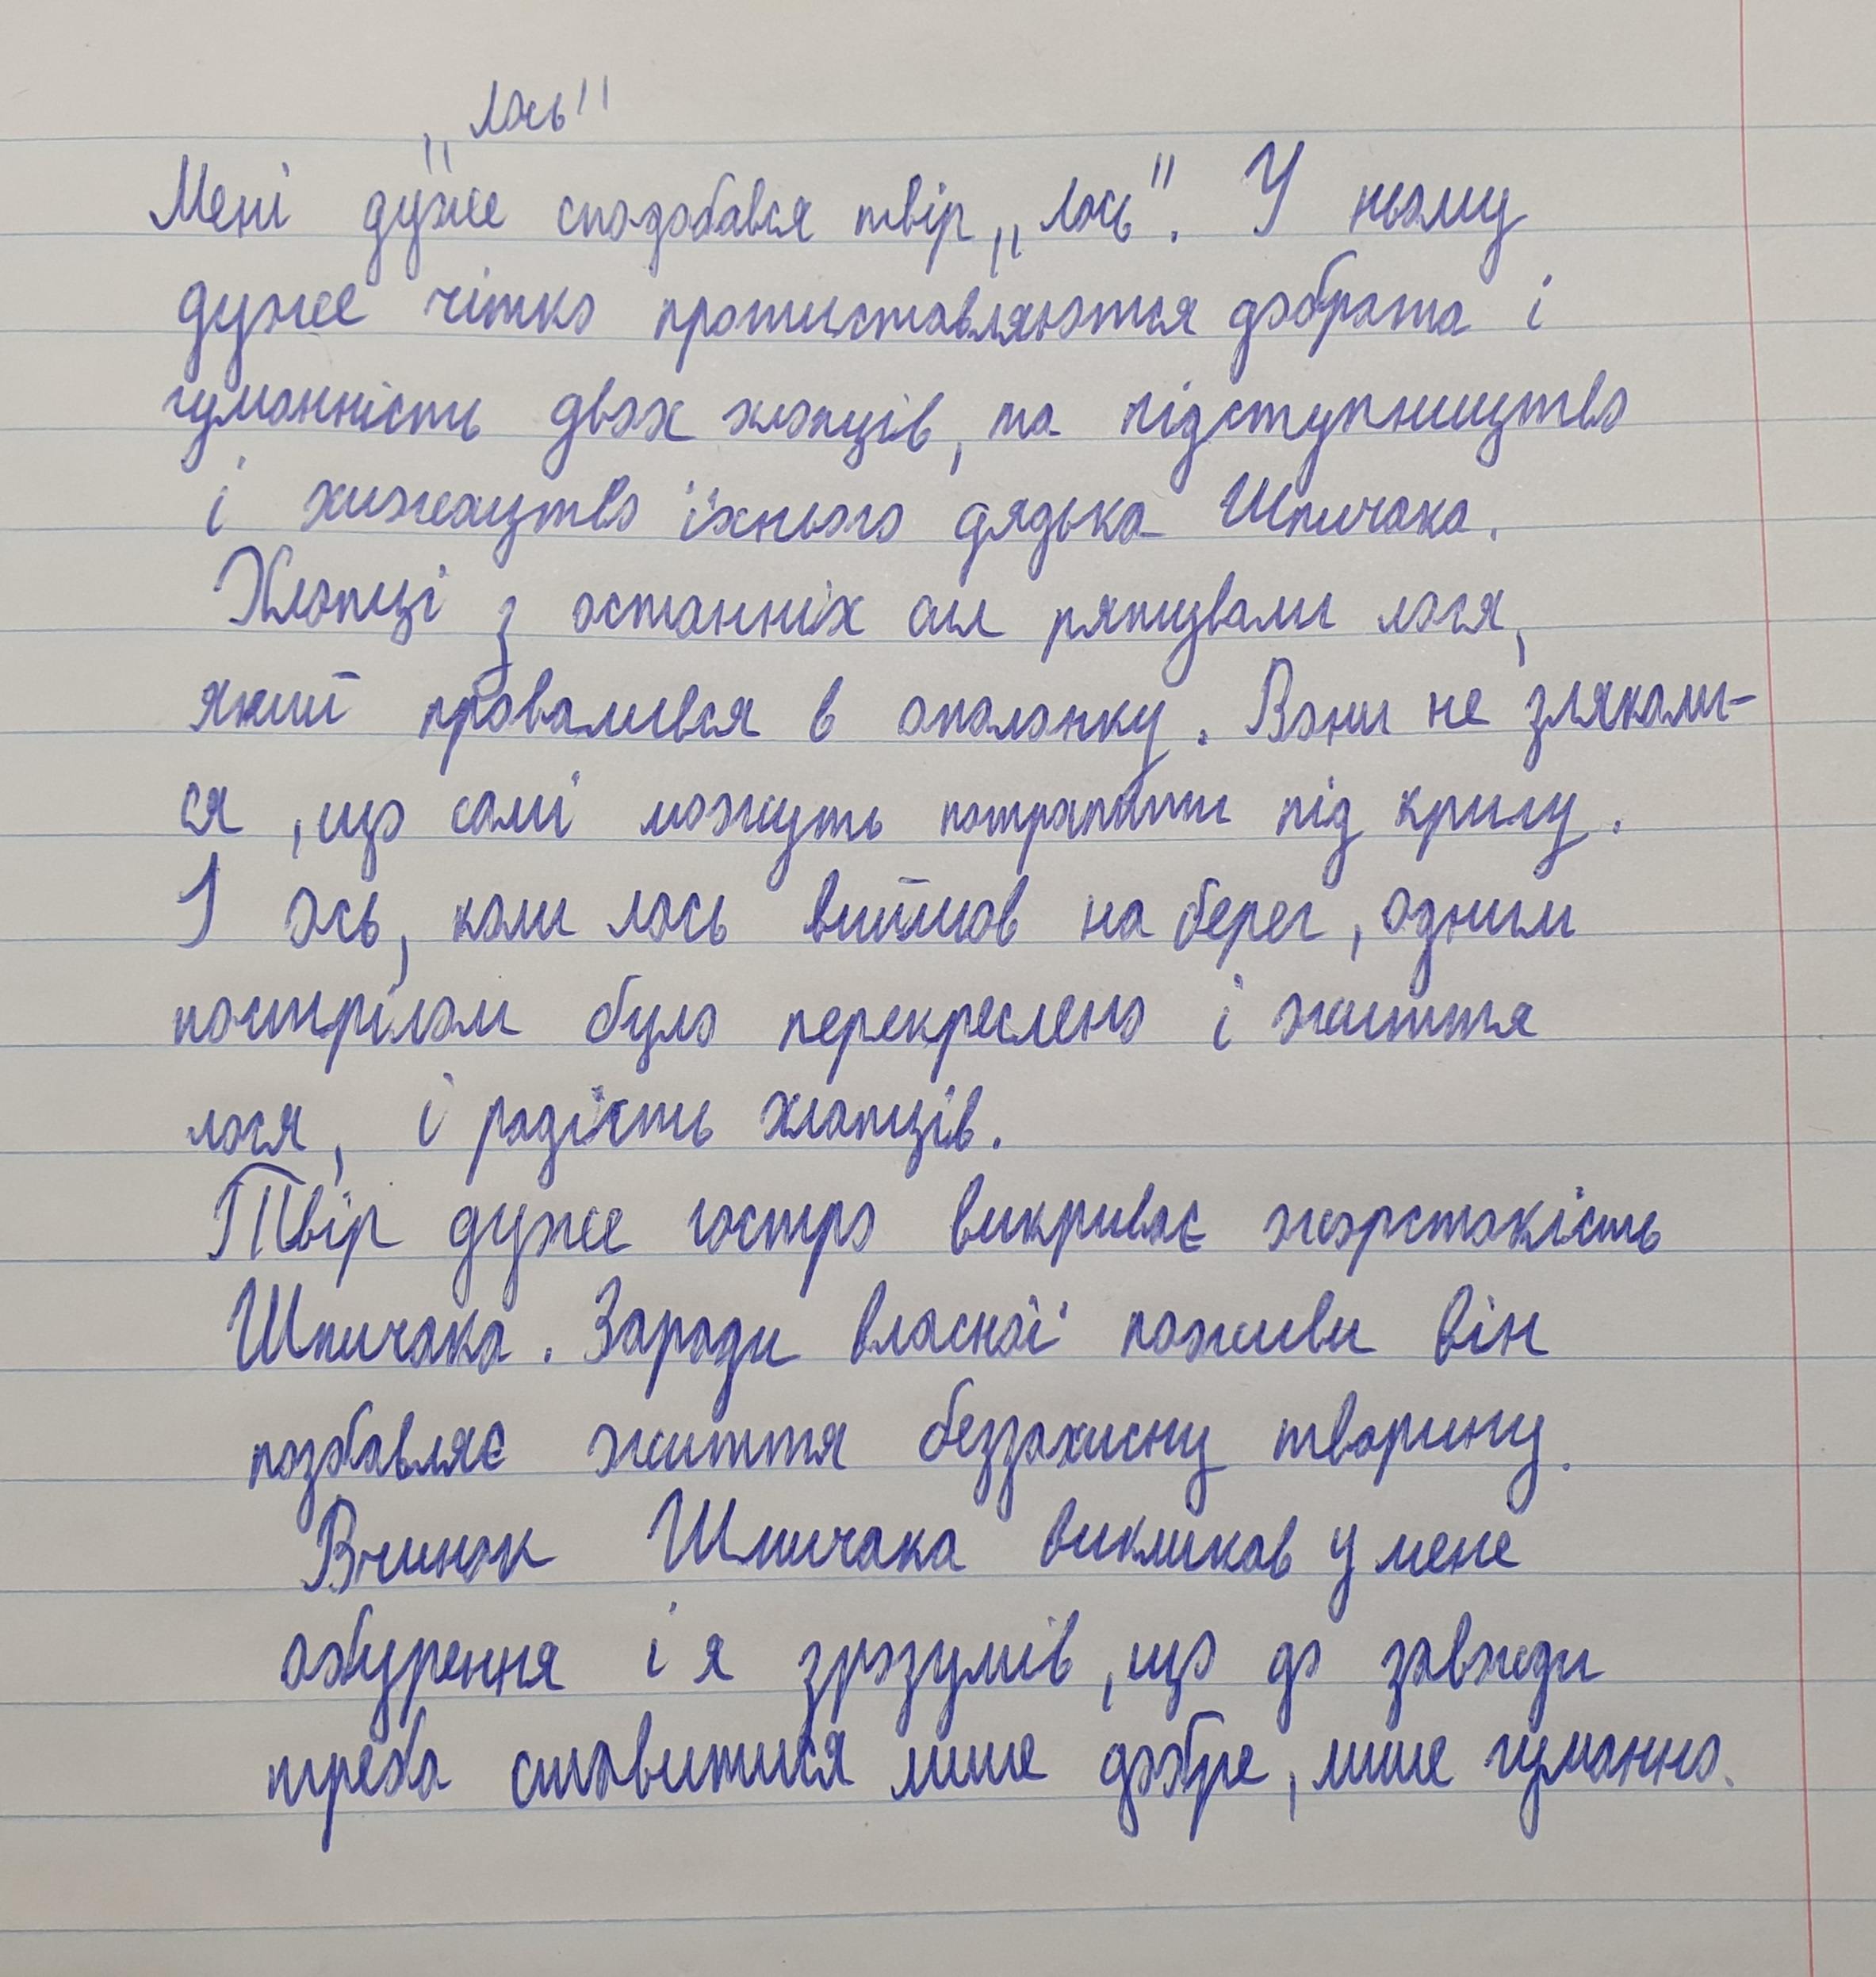 „Лось"
Мені дуже сподобався твір „Лось". У ньому
дуже чітко протиставляються доброта і
гуманність двох хлопців, та підступництво
і хижацтво їхнього дядька Шпичака.
Хлопці з останніх сил рятували лося,
який провалився в ополонку. Вони не злякали-
ся, що самі можуть потрапити під кригу.
І ось, коли лось вийшов на берег, одним
пострілом було перекреслено і життя
лося, і радість хлопців.
Твір дуже гостро викриває жорстокість
Шпичака. Заради власної поживи він
позбавляє життя беззахисну тварину.
Вчинок Шпичака викликав у мене
обурення і я зрозумів, що до завжди
треба ставитися лише добре, лише гуманно.